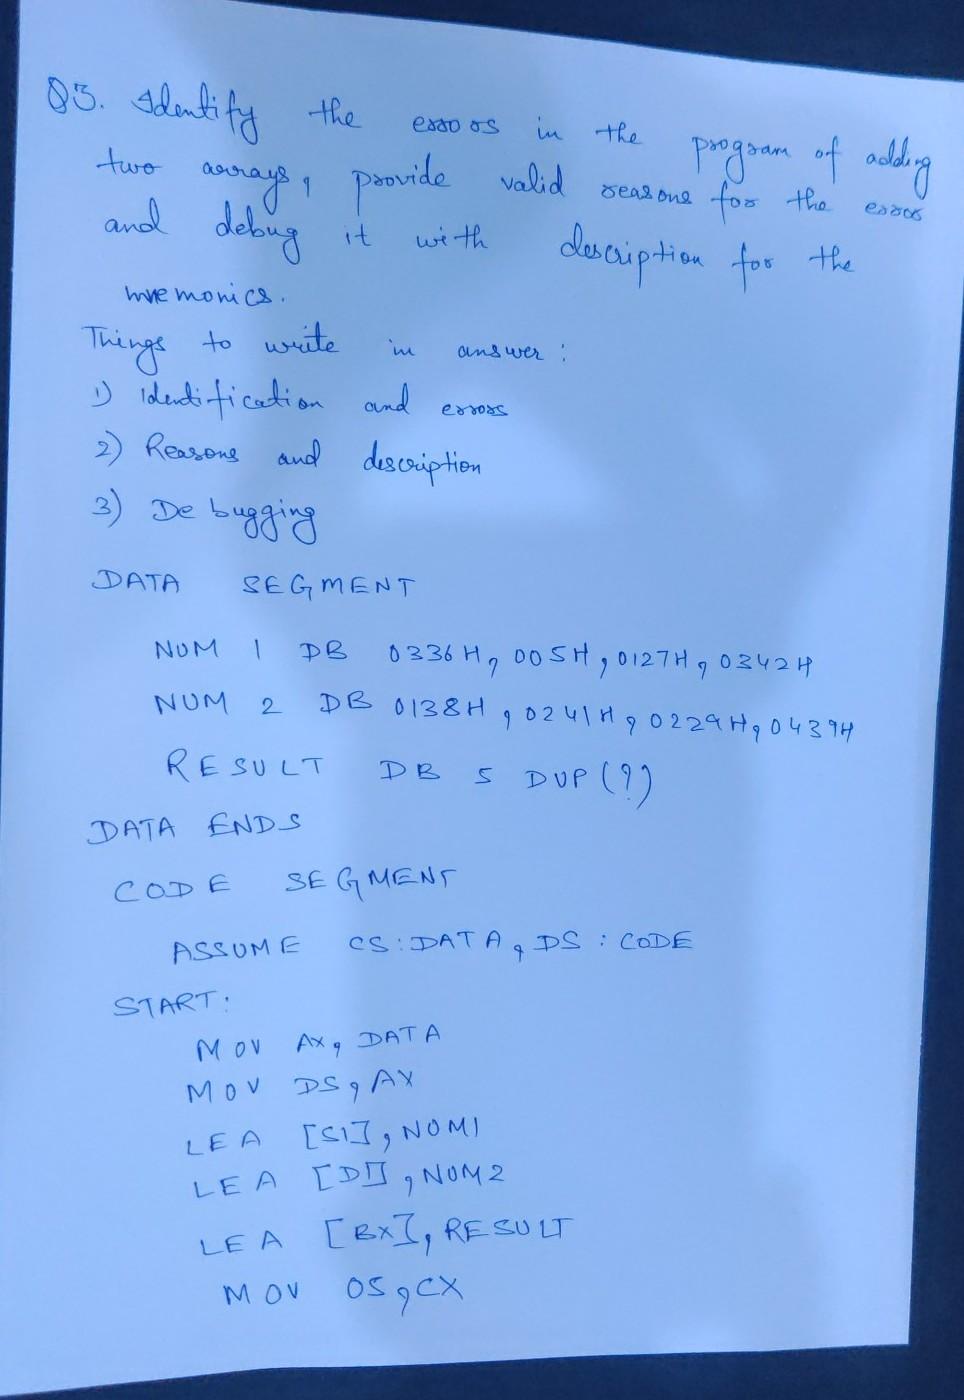 Q3. Identify the errors in the program of adding
two arrays, provide valid reasons for the errors
and debug it with description for the
mnemonics.
Things to write in answer :
1) Identification and errors
2) Reasons and description
3) Debugging
DATA SEGMENT
NUM 1 DB 0336H, 005H, 0127H, 0342H
NUM 2 DB 0138H, 0241H, 0229H, 0439H
RESULT DB 5 DUP (?)
DATA ENDS
CODE SEGMENT
ASSUME CS : DATA, DS : CODE
START:
MOV AX, DATA
MOV DS, AX
LEA [SI], NUM1
LEA [DI], NUM2
LEA [BX], RESULT
MOV 05, CX